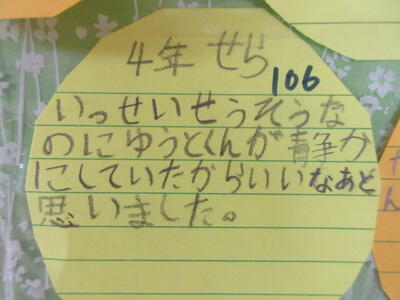 4年 せら
106
いっせいせうそうな
のにゆうとくんが静か
にしていたからいいなあと
思いました。